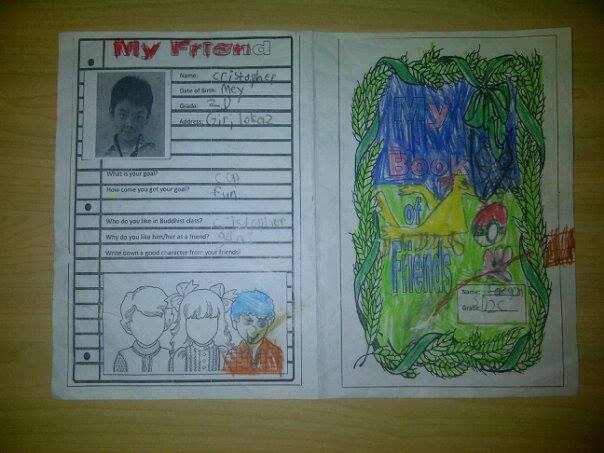 My Friend
Name: cristopher
Date of Birth: Mey
Grade: 2D
Address:
What is your goal? cop
How come you get your goal? fun
Who do you like in Buddhist class? cristopher
Why do you like him/her as a friend?
Write down a good character from your friends!
My
Book
of
Friends
Name:
Grade: 2C